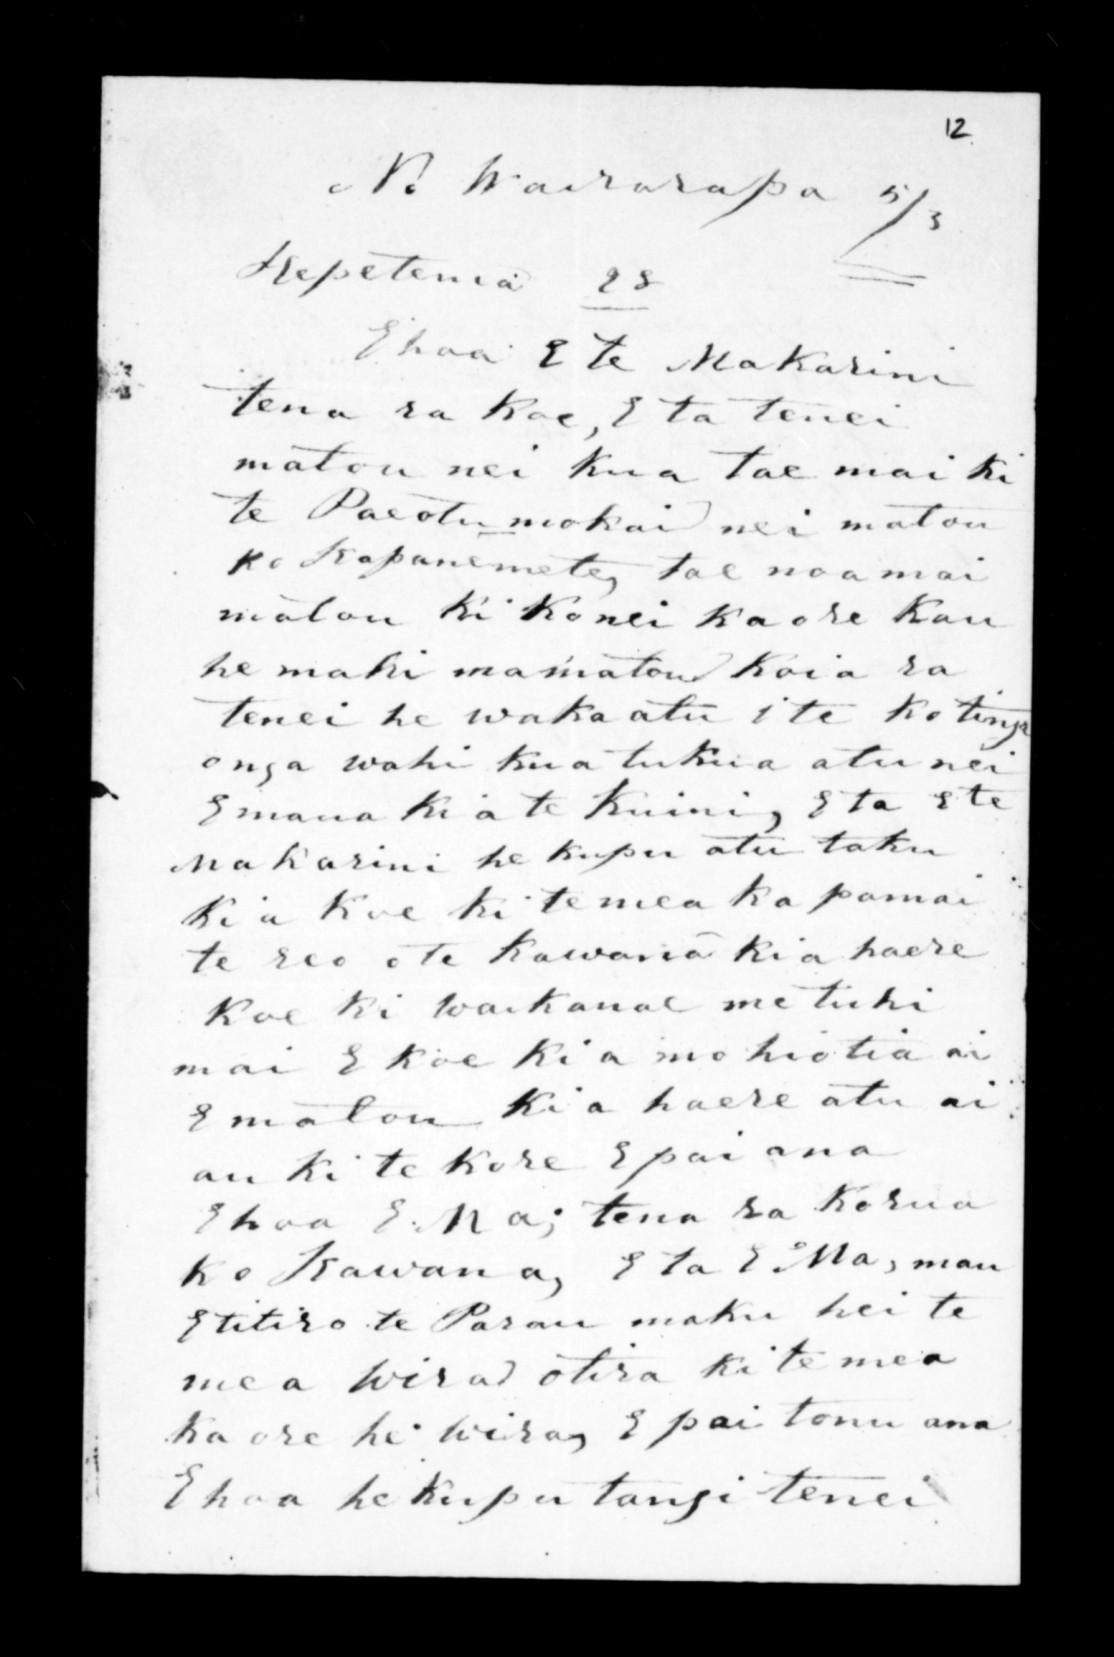 12
No Wairarapa 5/3
Hepetema 28
Ehoa E te Makarini
tena ra koe, E ta tenei
matou nei kua tae mai ki
te Paeotumokai nei matou
ko Kapanemete, tae noa mai
matou ki konei kaore kau
he mahi mamatou koia ra
tenei he wakaatu i te kotinga
onga wahi kua tukua atu nei
Emaua kia te Kuini, E ta E te
Makarini he kupu atu taku
kia koe ki temea ka pamai
te reo ote Kawana kia haere
koe ki Waikanae me tuhi
mai E koe kia mohiotia ai
E matou kia haere atu ai
au ki te kore E pai ana
Ehoa E. Ma; tena ra korua
ko Kawana, E ta E Ma, mau
E titiro te Parau maku hei te
mea Wira otira ki te mea
kaore he Wira, E pai tonu ana
Ehoa he kupu tangi tenei